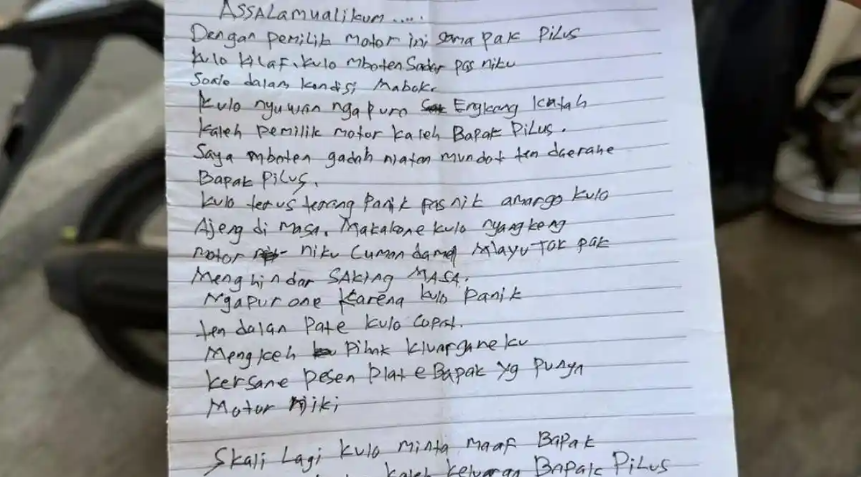 ASSALAMUALIKUM .....
Dengan pemilik motor ini sama pak PiLUS
Kulo KiLAF. Kulo mboten Sadar pas niku
Soale dalam kondisi Mabok.
Kulo nyuwun ngapuro Engkang Katah
kaleh pemilik motor kaleh BAPAK PiLUS.
Saya mboten gadah niatan mundot ten daerahe
BAPAK PiLUS.
Kulo terus terang Panik pas nik amargo kulo
Ajeng di masa. Makakane kulo nyangkeng
motor niku Cuman damel Mlayu Tok pak
Menghindar SAKING MASA.
Ngapurone Karena kulo Panik
ten dalan Pate kulo copot.
Mengkeh Pihak kluargane ku
kersane Pesen Plat e Bapak yg Punya
Motor Niki
Skali Lagi kulo minta maaf BAPAK
kaleh keluargan BAPAK PiLUS